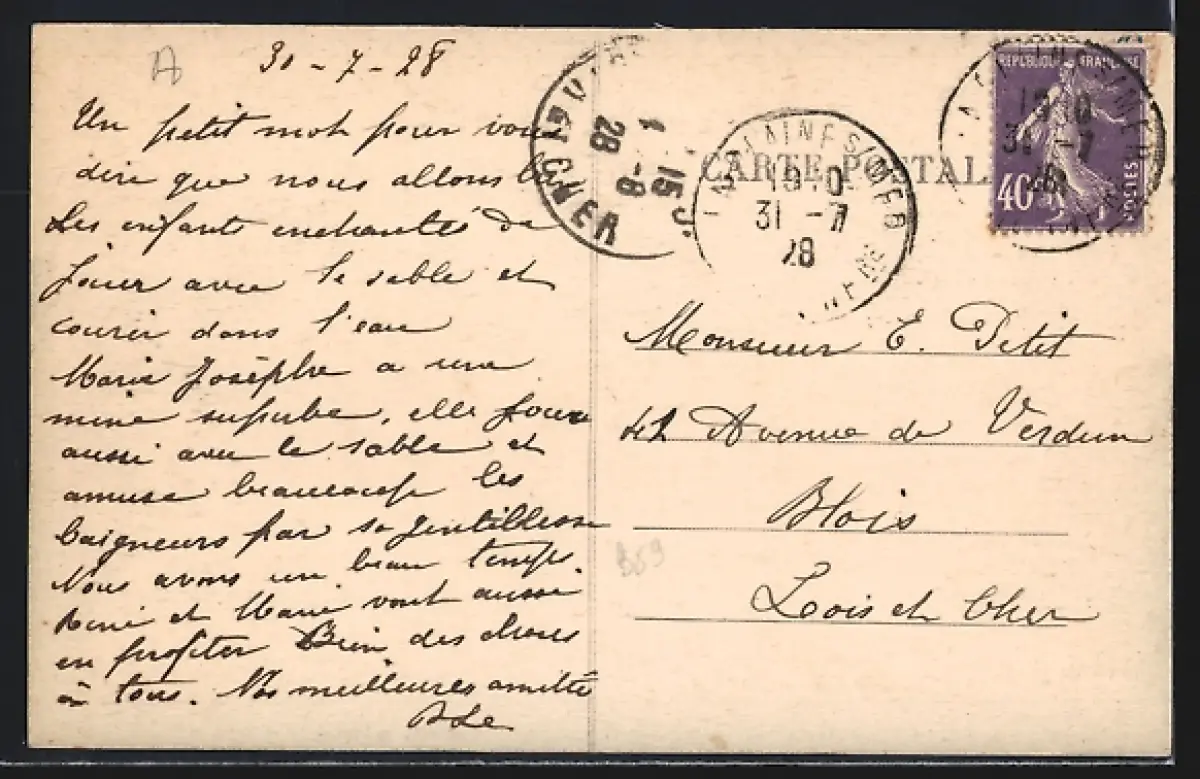 A
30-7-28
Un petit mot pour vous
dire que nous allons
Les enfants enchantés de
jouer avec le sable et
courir dans l'eau
Marie Josèphe a une
mine superbe, elle joue
aussi avec le sable et
amuse beaucoup les
baigneurs par sa gentillesse
Nous avons un beau temps.
René et Marie vont aussi
en profiter Bien des choses
à tous. Nos meilleures amitié
CHER
15
1 -8
28
CARTE POSTAL
19 10
31 -7
28
REPUBLIQUE FRANÇAISE
40c
POSTES
19 10
31 -7
28
Monsieur E. Petit
42 Avenue de Verdun
Blois
Loir et Cher
B59